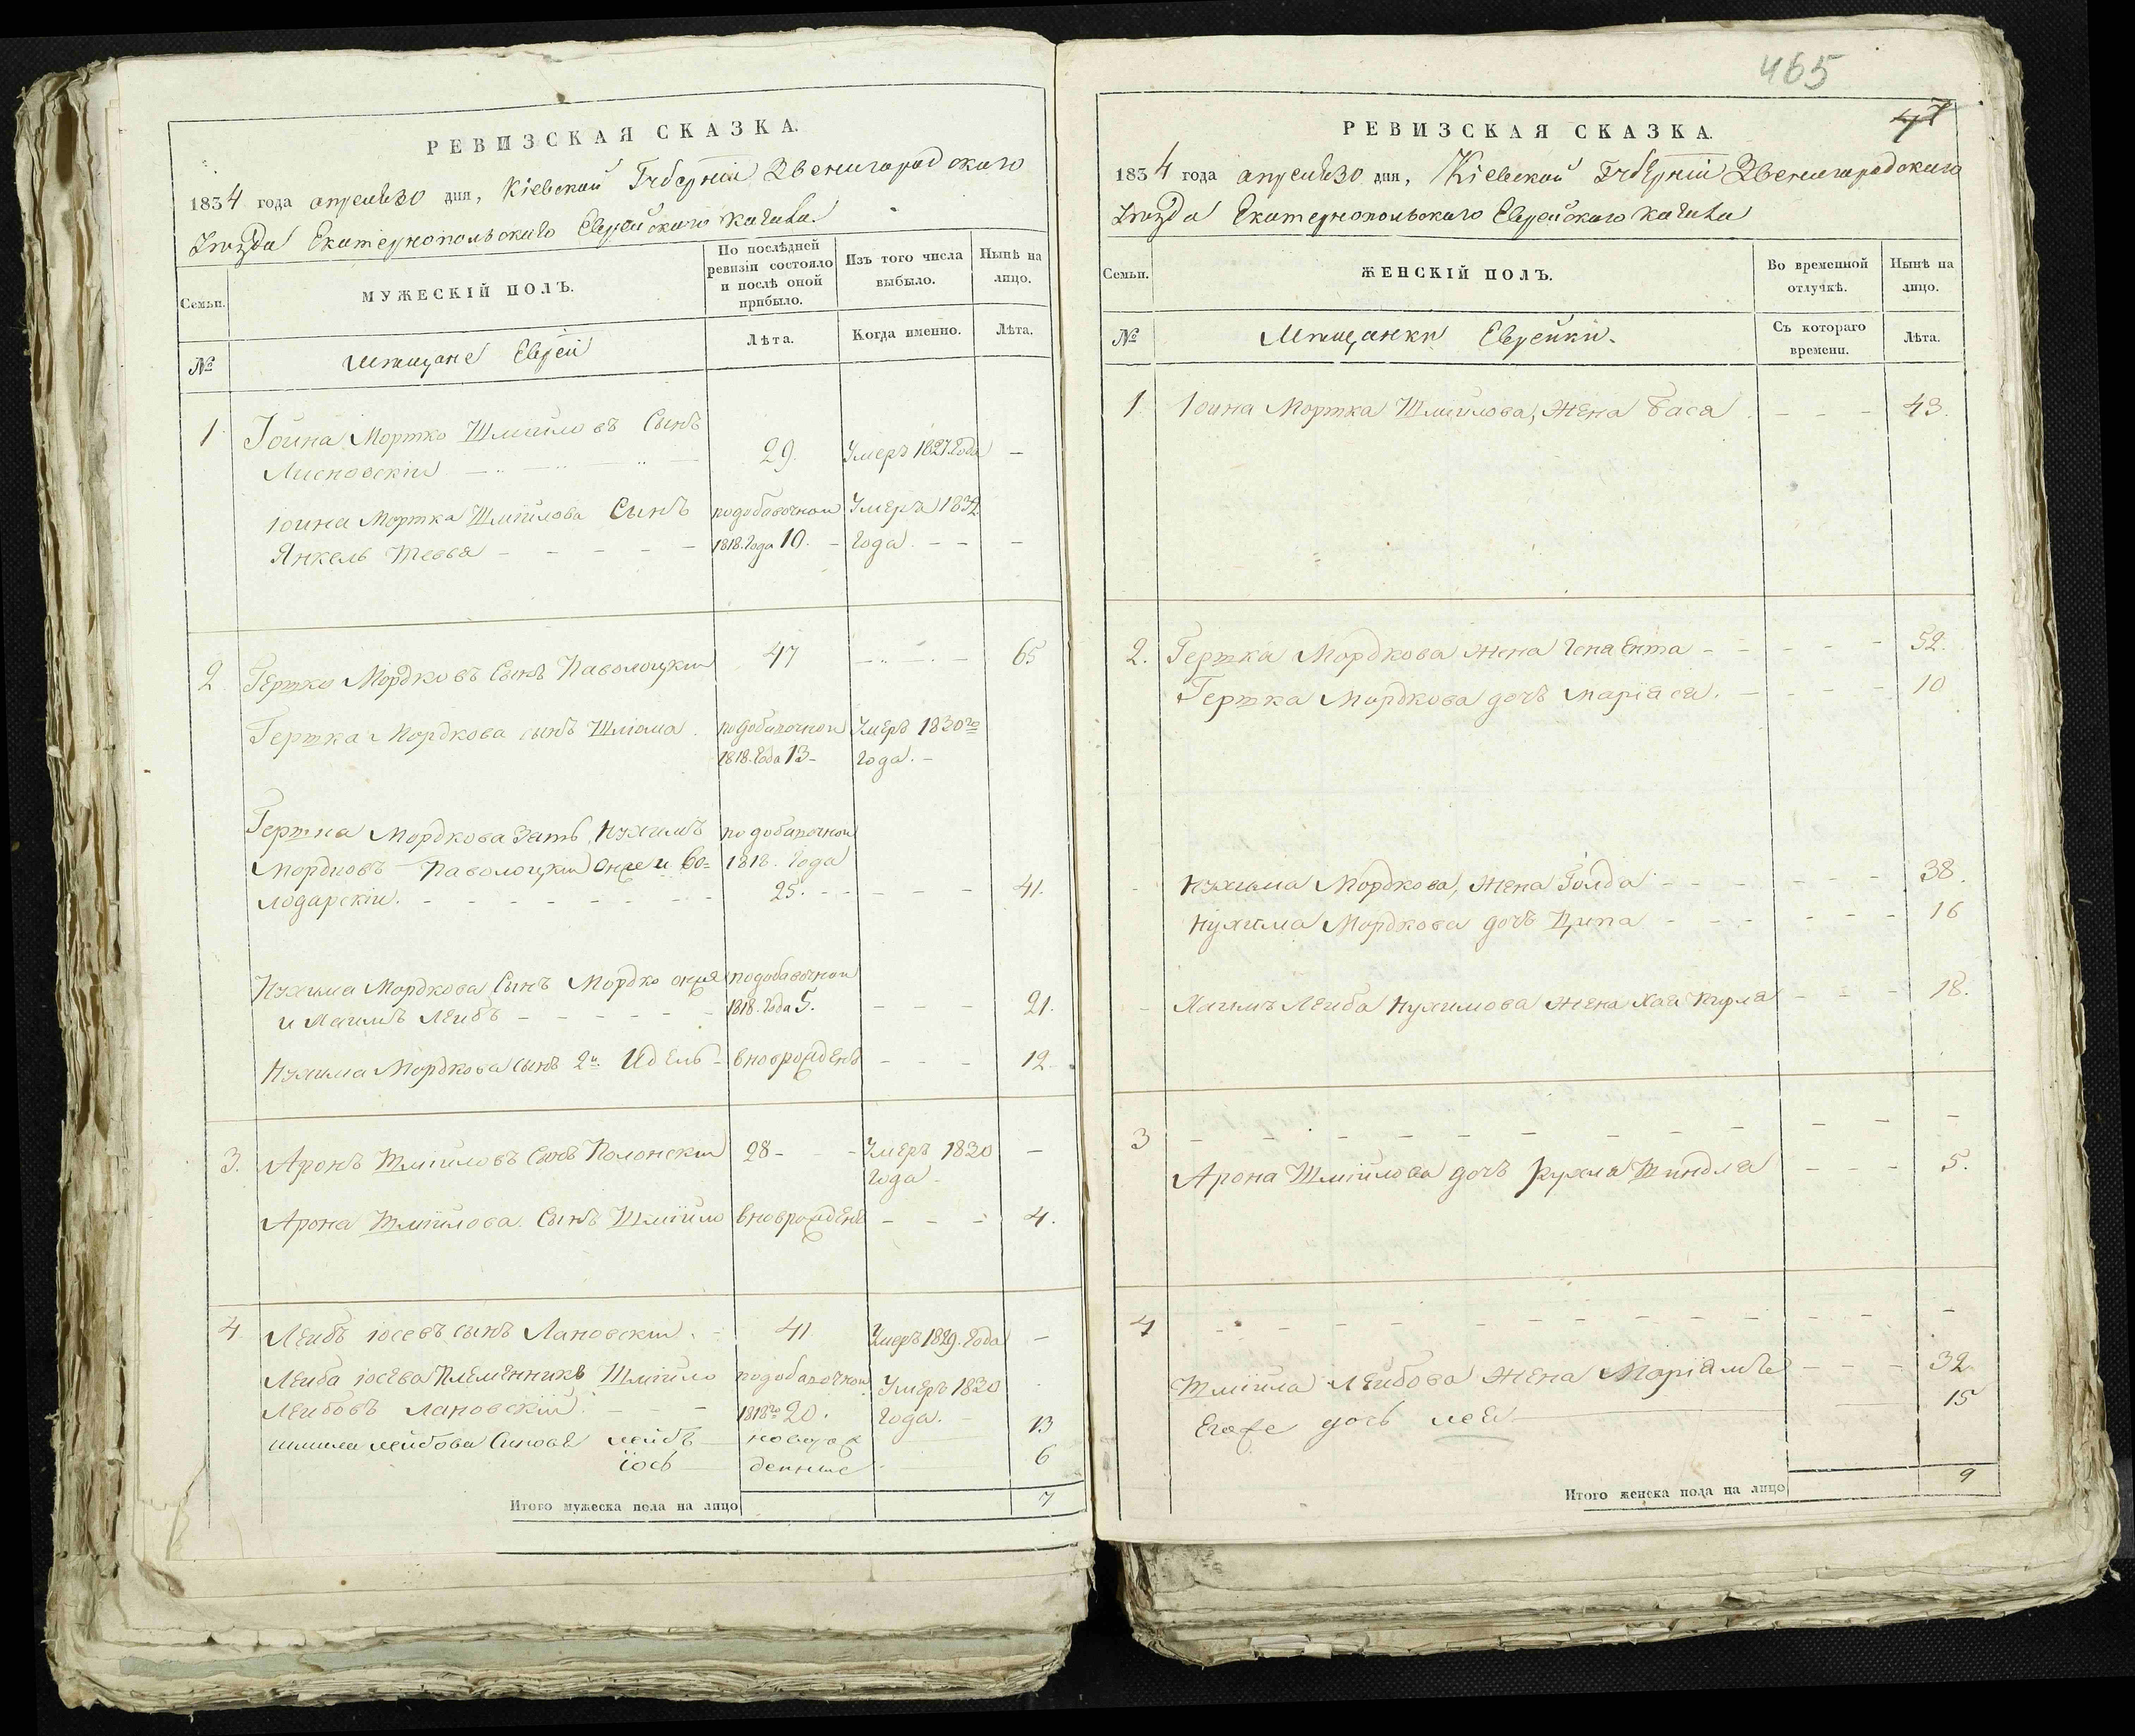 РЕВИЗСКАЯ СКАЗКА.
1834 года апреля 30 дня, Кіевской Губерніи Звенигородского
Уѣзда Екатеринопольского Еврейского Кагала
Семьи.
МУЖЕСКІЙ ПОЛЪ.
По послѣдней ревизіи состояло и послѣ оной прибыло.
Изъ того числа выбыло.
Нынѣ на лицо.
№
Мѣщане Евреи
Лѣта.
Когда именно.
Лѣта.
1 Іоина Мортко Шмуйловъ Сынъ
Лисновскій 29. Умеръ 1827. Года —
Іоина Мортка Шмуйлова Сынъ по добавочной Умеръ 1834
Янкель Тевья 1818. Года 10. Года. —
2 Гершко Мордковъ Сынъ Паволоцкій 47 — 65
Гершка Мордкова сынъ Шлёма. по добавочной Умеръ 1830го
1818. Года 13 Года.
Гершка Мордкова Зять, Нухимъ по добавочной
Мордковъ Паволоцкій онже и Во= 1818. Года
лодарскій. 25. — 41.
Нухима Мордкова Сынъ Мордко онже по добавочной
и Хаимъ Лейбъ 1818. Года 5. — 21.
Нухима Мордкова сынъ 2й Идель вноврожденъ — 12
3. Аронъ Шмуйловъ Сынъ Полонскій 28 Умеръ 1830 —
Года
Арона Шмуйлова Сынъ Шмуйло вноврожденъ — 4.
4 Лейбъ Іосевъ сынъ Лановскій. 41. Умеръ 1829. Года —
Лейба Іосева Племенникъ Шмуйло по добавочной Умеръ 1830
Лейбовъ Лановскій. 1818го 20. Года.
Шмуйла Лейбова Синовья Лейбъ новорож 13
Іось денные 6
Итого мужеска пола на лицо 7
465
47
РЕВИЗСКАЯ СКАЗКА.
1834 года апреля 30 дня, Кіевской Губерніи Звенигородского
Уѣзда Екатеринопольского Еврейского Кагала
Семьи.
ЖЕНСКІЙ ПОЛЪ.
Во временной отлучкѣ.
Нынѣ на лицо.
№
Мѣщанки Еврейки.
Съ котораго времени.
Лѣта.
1. Іоина Мортка Шмуйлова, Жена Бася — 43.
2. Гершка Мордкова Жена Ента — 52.
Гершка Мордкова дочь Маріася. — 10
Нухима Мордкова, Жена Голда — 38.
Нухима Мордкова дочь Ципа — 16
Хаимъ Лейба Нухимова Жена Хая — 18.
3 — —
Арона Шмуйлова дочь Рухля Шиндля — 5.
4 — —
Шмуйла Лейбова Жена Маріамъ — 32
Егоже дочь Лея 15
Итого женска пола на лицо 9